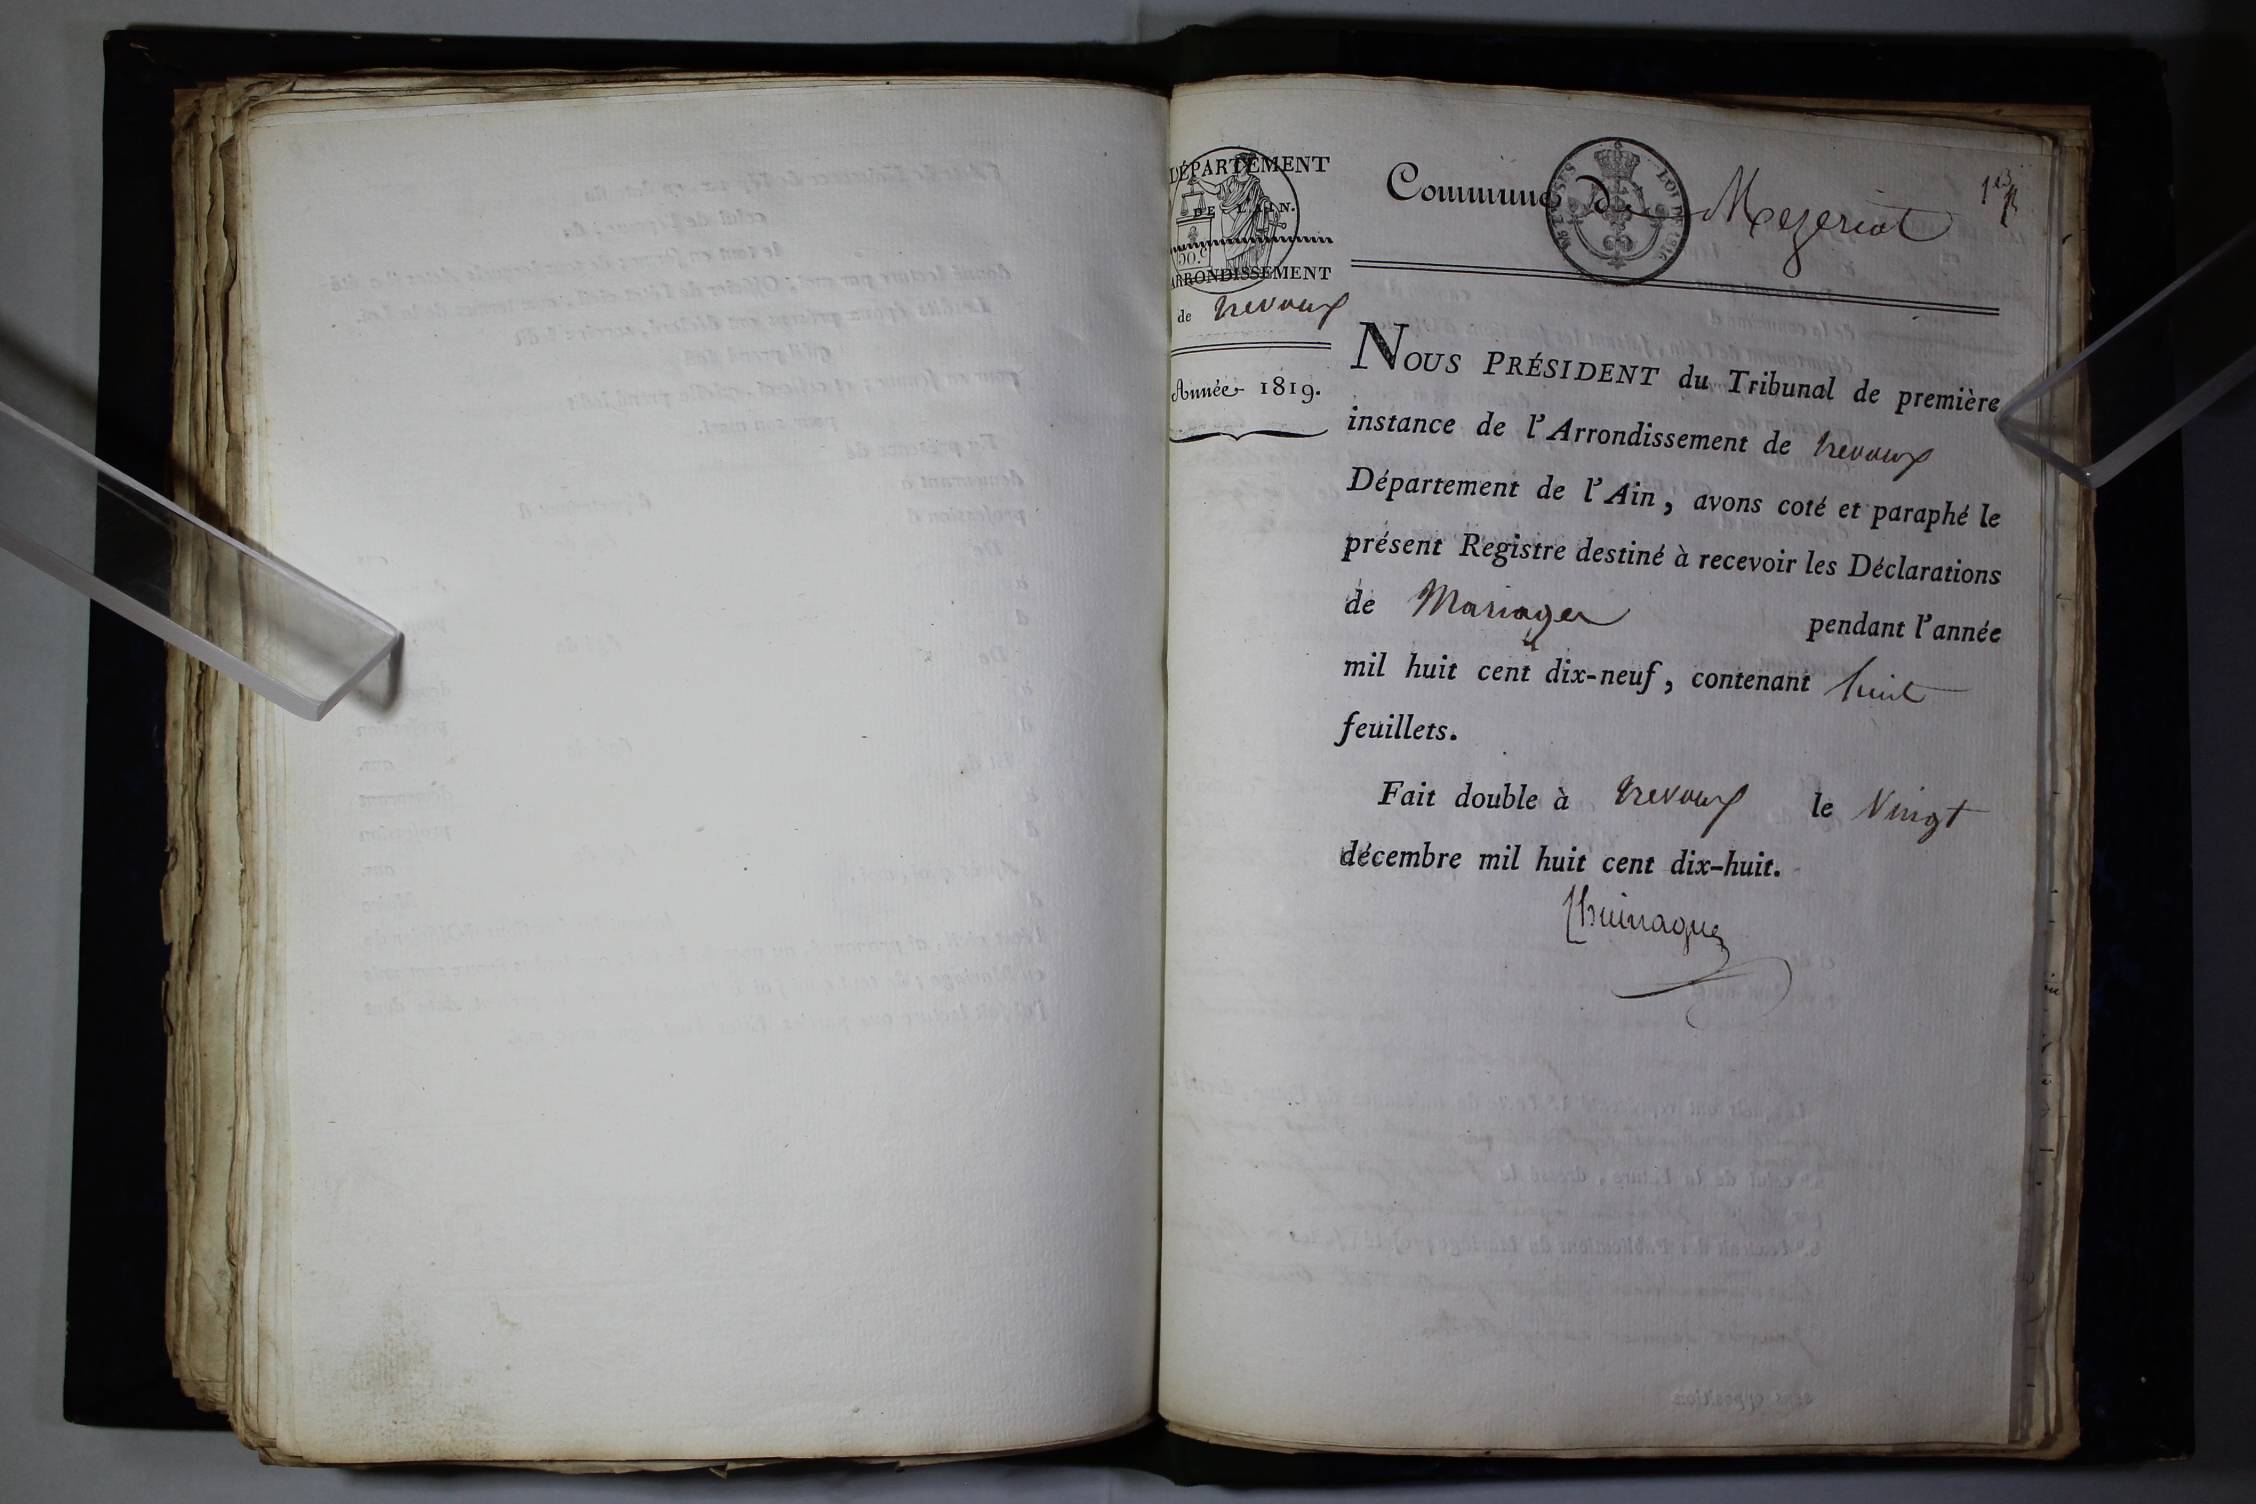 DÉPARTEMENT
DE L'AIN.
50.C
ARRONDISSEMENT
de Trevoux
Année 1819.
Commune de Mezeriat
LOI DE 1816
Nous PRÉSIDENT du Tribunal de première
instance de l'Arrondissement de Trevoux
Département de l'Ain, avons coté et paraphé le
présent Registre destiné à recevoir les Déclarations
de Mariages pendant l'année
mil huit cent dix-neuf, contenant huit
feuillets.
Fait double à Trevoux le Vingt
décembre mil huit cent dix-huit.